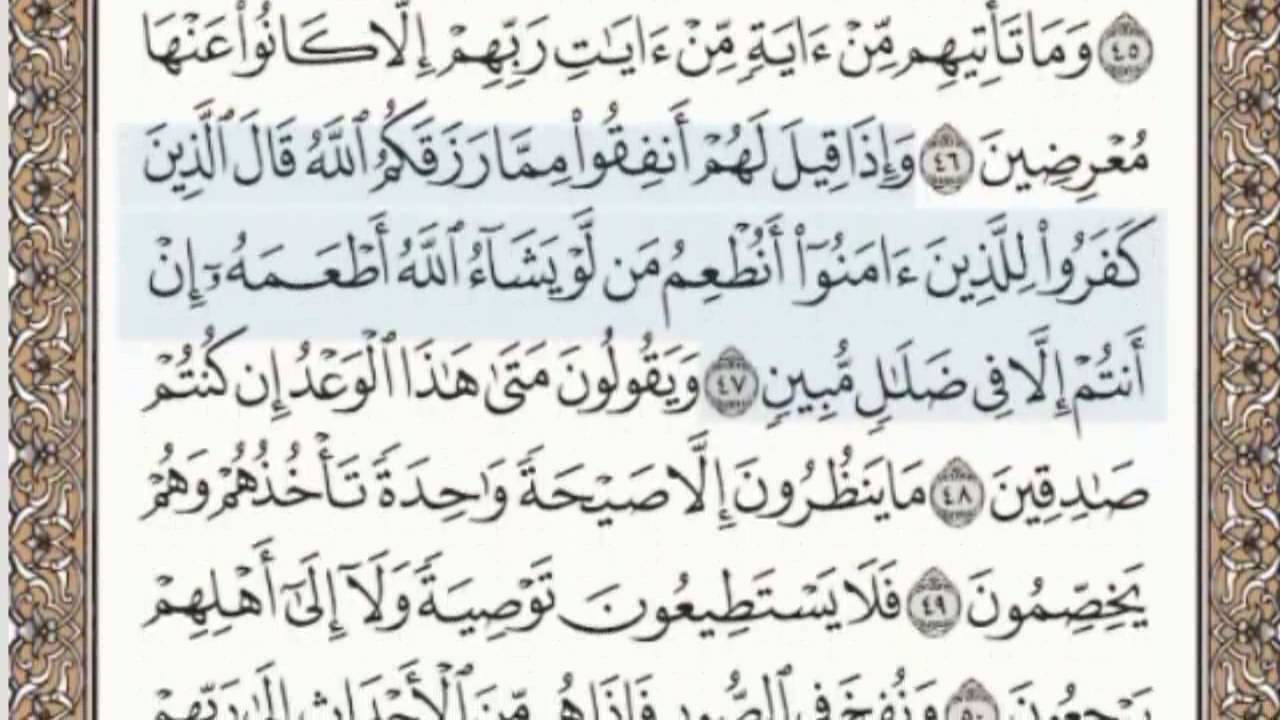 ٤٥ وَمَا تَأْتِيهِم مِّنْ ءَايَةٍ مِّنْ ءَايَٰتِ رَبِّهِمْ إِلَّا كَانُوا۟ عَنْهَا
مُعْرِضِينَ ٤٦ وَإِذَا قِيلَ لَهُمْ أَنفِقُوا۟ مِمَّا رَزَقَكُمُ ٱللَّهُ قَالَ ٱلَّذِينَ
كَفَرُوا۟ لِلَّذِينَ ءَامَنُوٓا۟ أَنُطْعِمُ مَن لَّوْ يَشَآءُ ٱللَّهُ أَطْعَمَهُۥٓ إِنْ
أَنتُمْ إِلَّا فِى ضَلَٰلٍ مُّبِينٍ ٤٧ وَيَقُولُونَ مَتَىٰ هَٰذَا ٱلْوَعْدُ إِن كُنتُمْ
صَٰدِقِينَ ٤٨ مَا يَنظُرُونَ إِلَّا صَيْحَةً وَٰحِدَةً تَأْخُذُهُمْ وَهُمْ
يَخِصِّمُونَ ٤٩ فَلَا يَسْتَطِيعُونَ تَوْصِيَةً وَلَآ إِلَىٰٓ أَهْلِهِمْ
يَرْجِعُونَ ٥٠ وَنُفِخَ فِى ٱلصُّورِ فَإِذَا هُم مِّنَ ٱلْأَجْدَاثِ إِلَىٰ رَبِّهِمْ